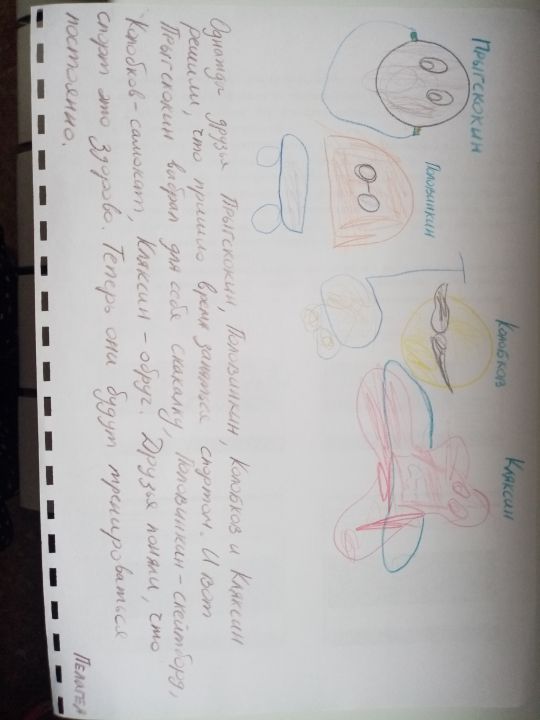 Прыгскокин Половинкин Колобков Кляксин
Однажды друзья Прыгскокин, Половинкин, Колобков и Кляксин
решили, что пришло время заняться спортом. И вот
Прыгскокин выбрал для себя скакалку, Половинкин - скейтборд,
Колобков - самокат, Кляксин - обруч. Друзья поняли, что
спорт это здорово. Теперь они будут тренироваться
постоянно.
Пелагея